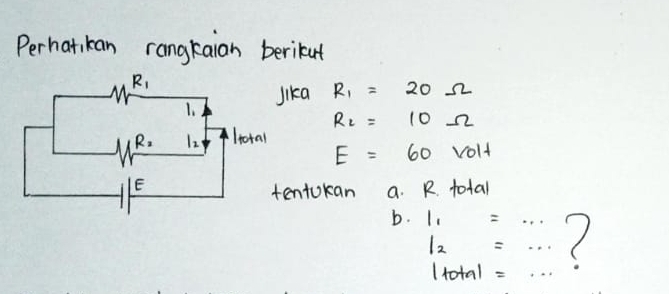 Perhatikan rangkaian berikut
R₁
I₁
R₂
I₂
Itotal
E
Jika R₁ = 20 Ω
R₂ = 10 Ω
E = 60 volt
tentukan a. R total
b. I₁ = ...
I₂ = ...
Itotal = ...
?